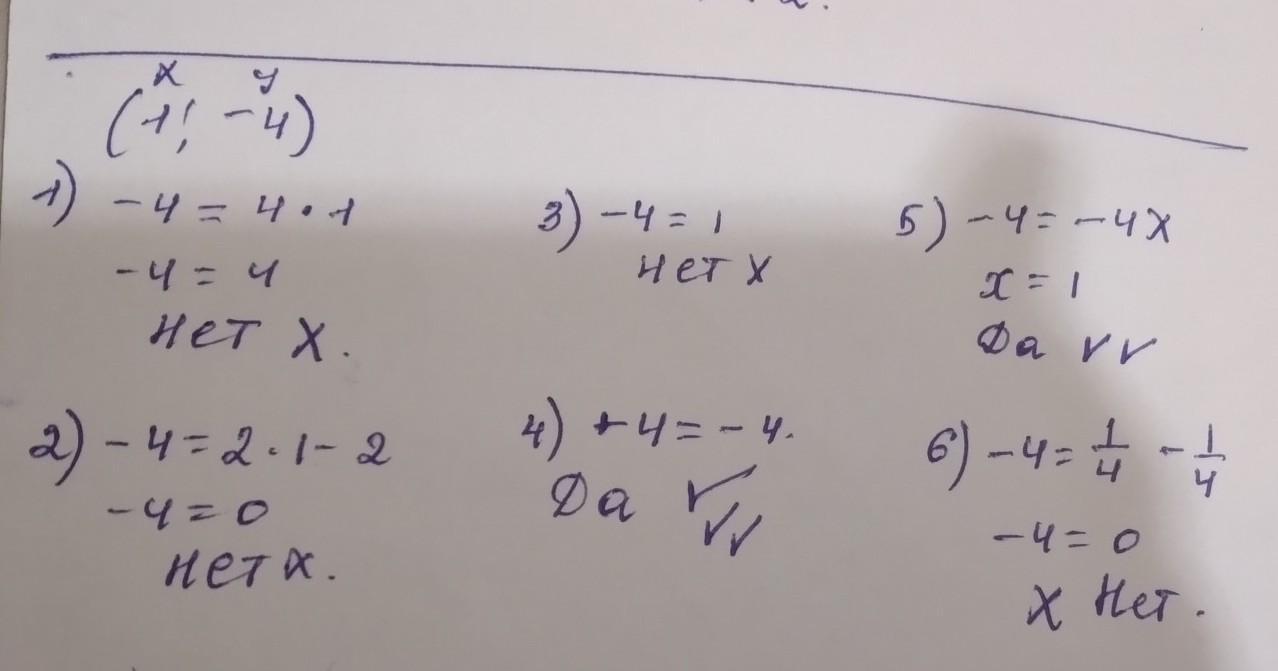 x y
(1; -4)
1) -4 = 4 · 1
-4 = 4
нет x.
2) -4 = 2 · 1 - 2
-4 = 0
нет x.
3) -4 = 1
нет x
4) -4 = -4.
Да ✓
✓✓
5) -4 = -4x
x = 1
Да ✓✓
6) -4 = 1/4 - 1/4
-4 = 0
x Нет.